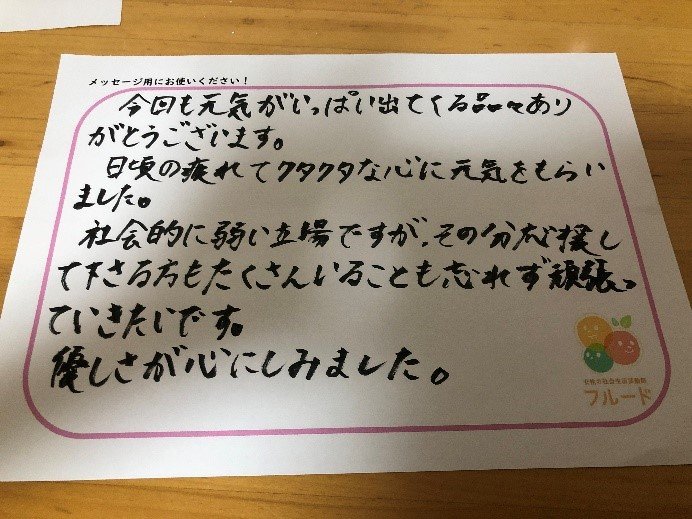 メッセージ用にお使いください！
今回も元気がいっぱい出てくる品々あり
がとうございます。
日頃の疲れてクタクタな心に元気をもらい
ました。
社会的に弱い立場ですが、その分応援し
て下さる方もたくさんいることも忘れず頑張っ
ていきたいです。
優しさが心にしみました。
フルード